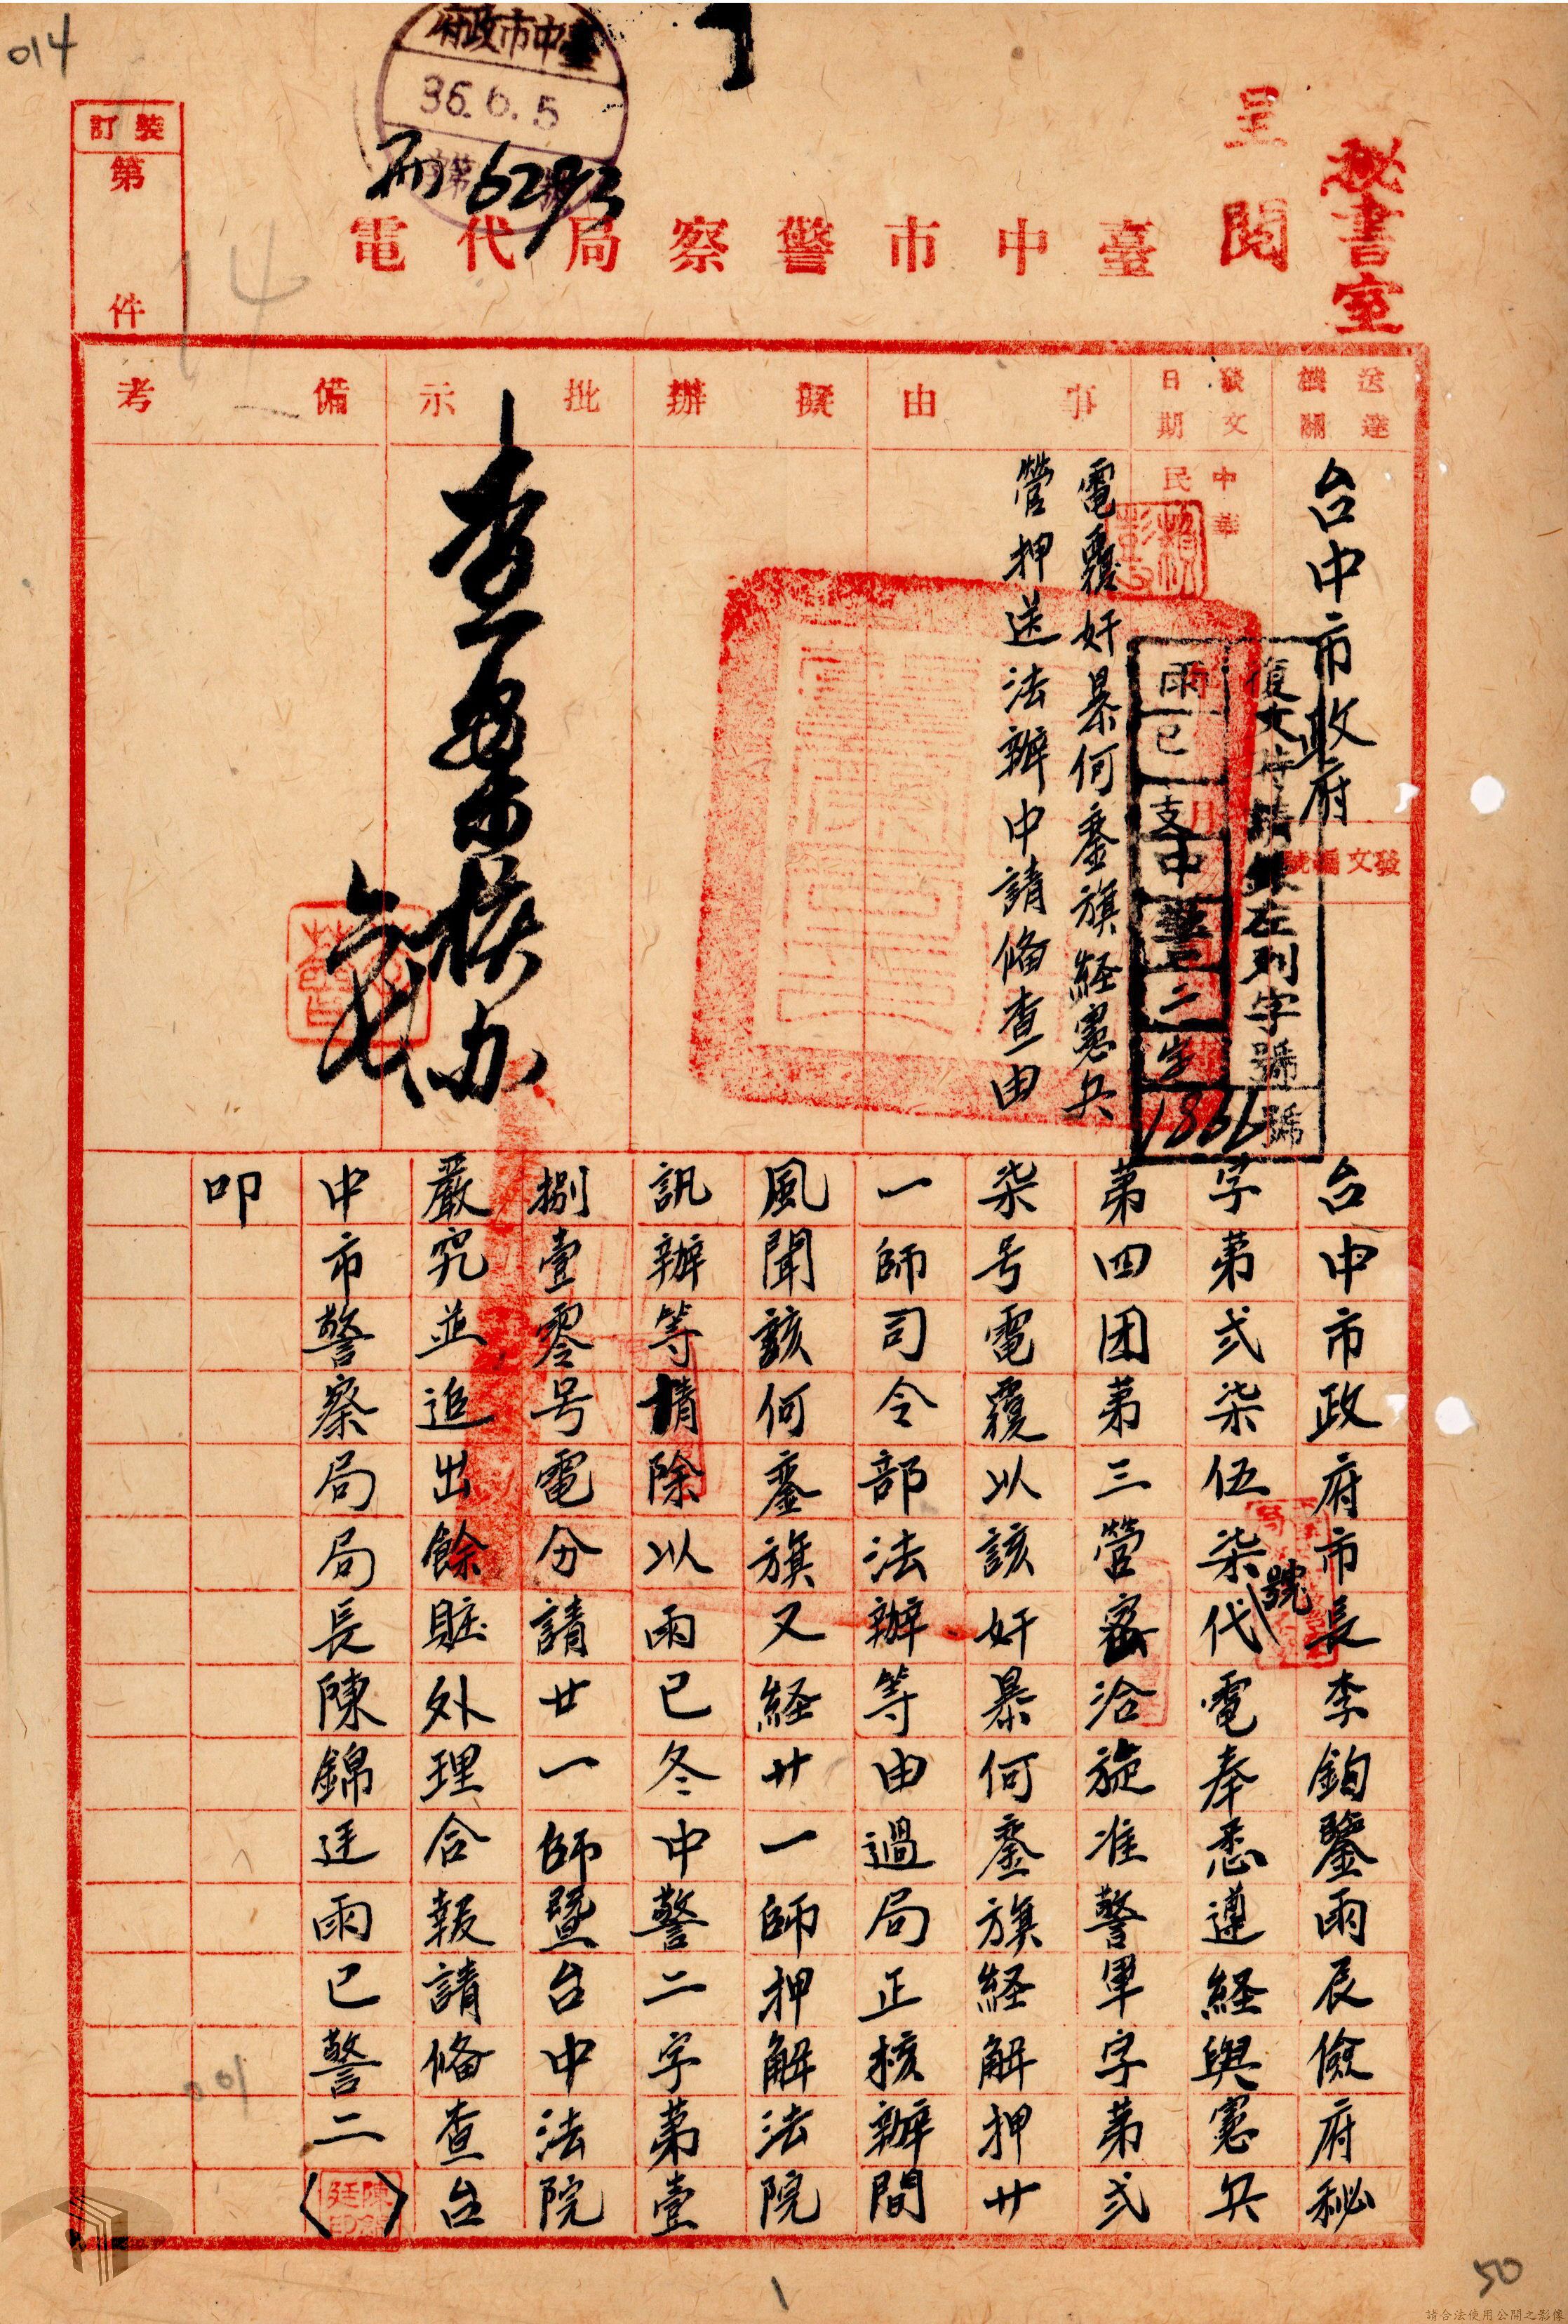 014
臺中市政府
36.6.5
第 號
丙 6293
秘書室
呈閱
臺中市警察局代電
裝訂
第 件
送達機關
台中市政府
發文日期
中華民
月
發文 號
復文時請銀左列字號
雨已支中警二字
1866號
事由
電覆奸暴何鑾旗経憲兵
營押送法辦申請俻查由
擬辦
批示
查案核办
六七
備考
台中市政府市長李鈞鑒雨辰儉府秘
字第弍柒伍柒號代電奉悉遵経與憲兵
第四团第三營密洽旋准警軍字第弍
柒号電覆以該奸暴何鑾旗経解押廿
一師司令部法辦等由過局正核辦間
風聞該何鑾旗又経廿一師押解法院
訊辦等情除以雨已冬中警二字第壹
捌壹零号電分請廿一師暨台中法院
嚴究並追出餘賍外理合報請俻查台
中市警察局局長陳錦廷雨已警二
叩
陳錦廷印
001
50
請合法使用公開之影像